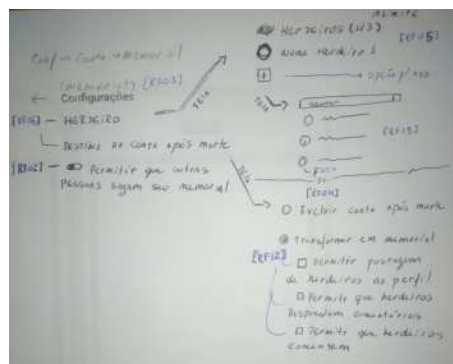 Conf → Conta → Memorial
(memorial) [RS03]
← Configurações
HERDEIRO
Destino da conta após morte
[RS02] — Permitir que outras
pessoas sigam seu memorial
Tela
Herdeiros (1/3)
Nome Herdeiro 1
+
Tela
Tela
Excluir conta após morte
Transformar em memorial
[RF12]
Permitir postagem
de herdeiros no perfil
Permite que herdeiros
respondam comentários
Permite que herdeiros
comentem